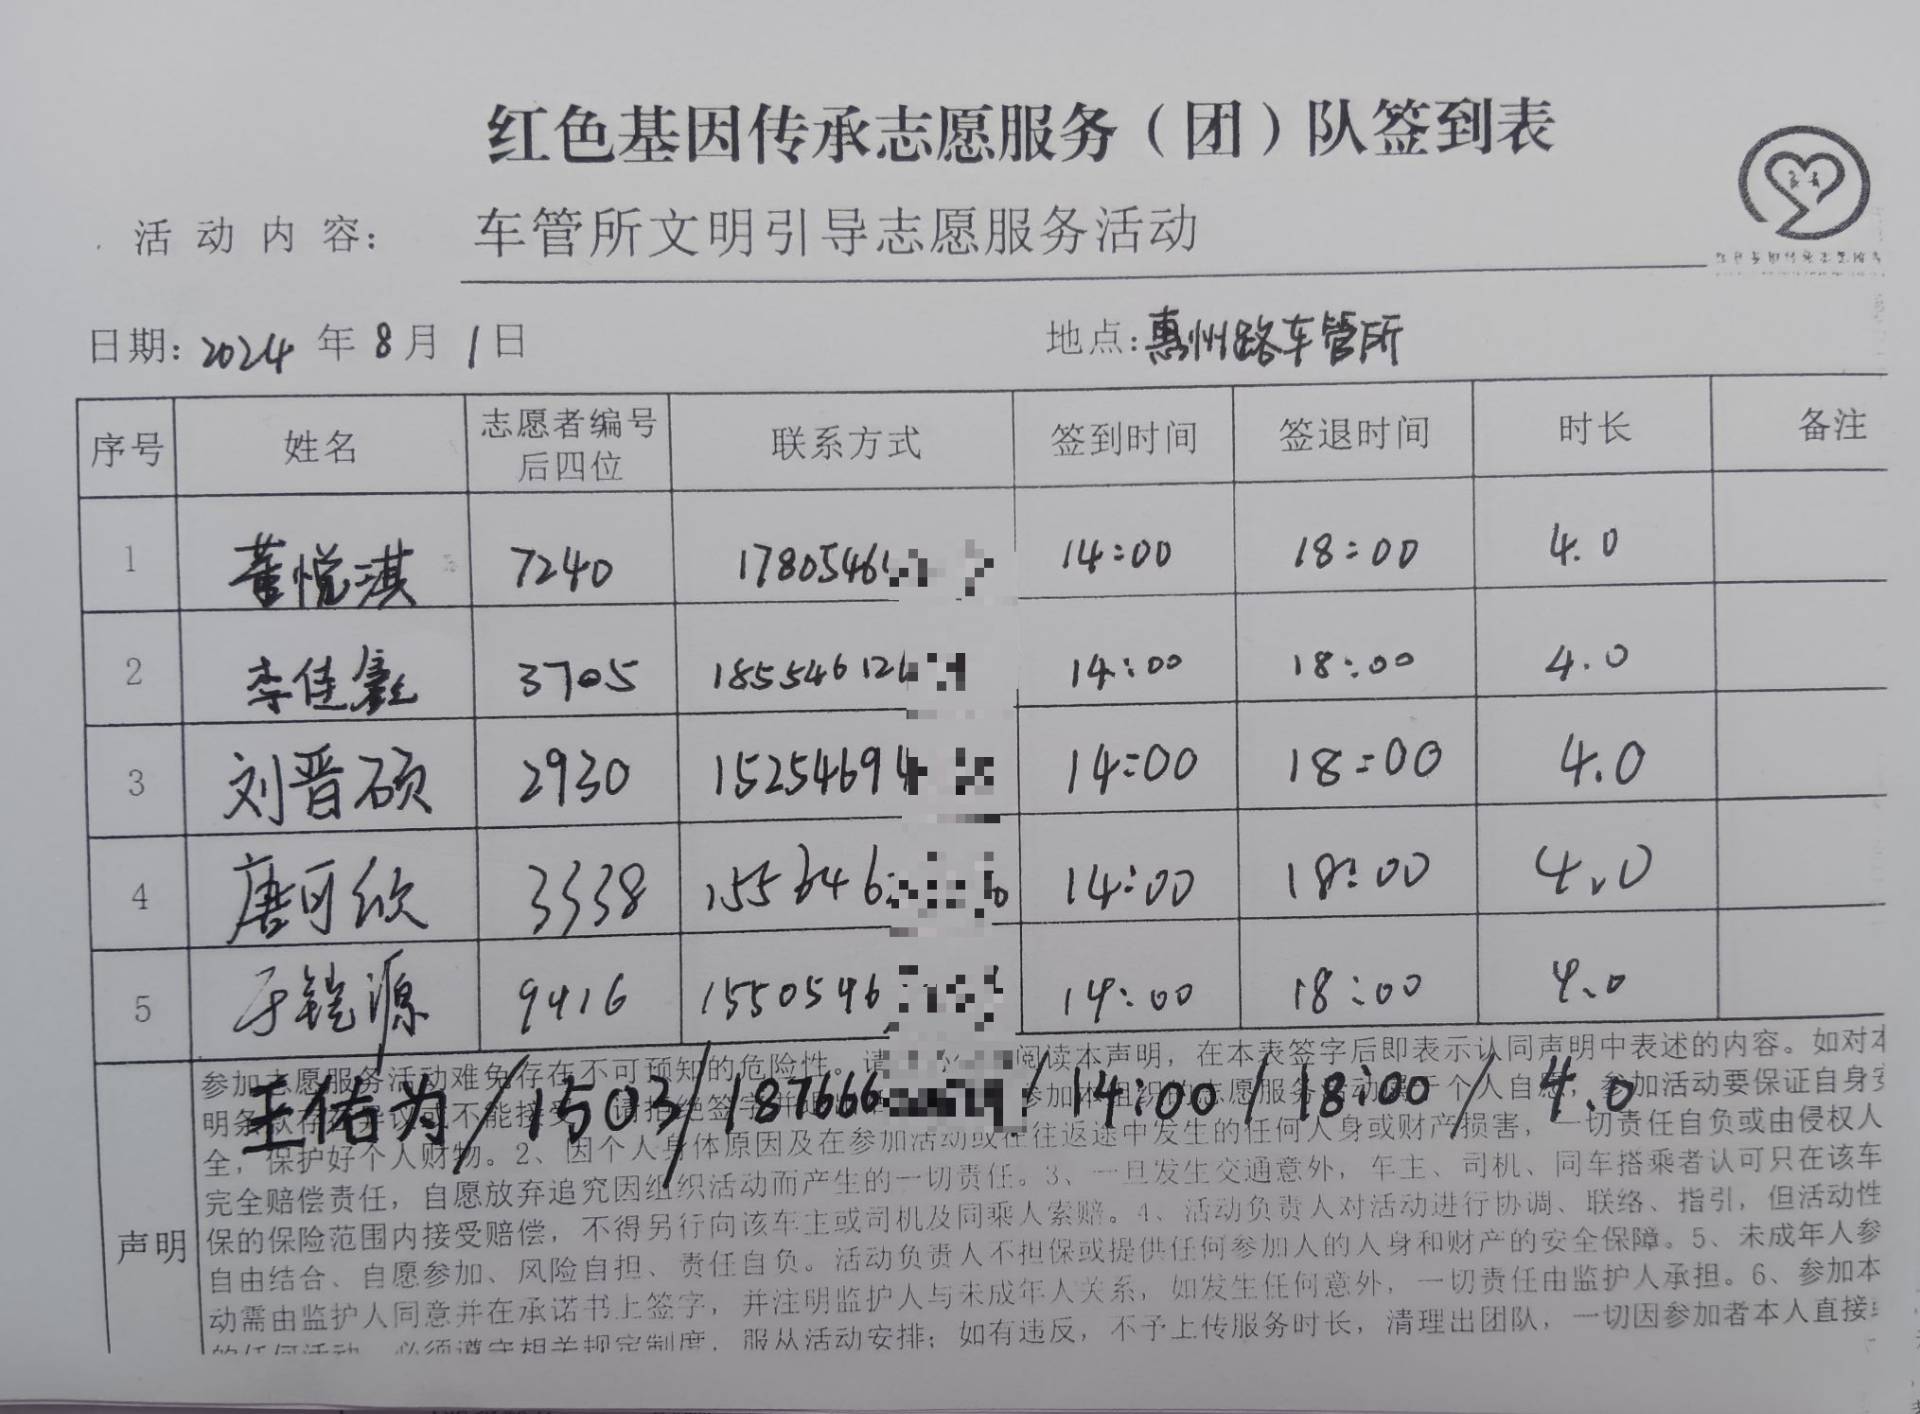 红色基因传承志愿服务（团）队签到表
活动内容： 车管所文明引导志愿服务活动
日期：2024年8月1日 地点：惠州路车管所
序号 姓名 志愿者编号后四位 联系方式 签到时间 签退时间 时长 备注
1 董悦淇 7240 17805461 14:00 18:00 4.0
2 李佳 3705 185546126 14:00 18:00 4.0
3 刘晋硕 2930 15254694 14:00 18:00 4.0
4 唐可欣 3338 155646 14:00 18:00 4.0
5 于铠源 9416 1550546 14:00 18:00 4.0
王佑为/1503/187666 9/14:00/18:00/4.0
声明
参加志愿服务活动难免存在不可预知的危险性。请 阅读本声明，在本表签字后即表示认同声明中表述的内容。如对本
明条款存在异议或不能接受，请拒绝签字 参加本组织的志愿服务活动属于个人自愿，参加活动要保证自身安
全，保护好个人财物。2、因个人身体原因及在参加活动或在往返途中发生的任何人身或财产损害，一切责任自负或由侵权人
完全赔偿责任，自愿放弃追究因组织活动而产生的一切责任。3、一旦发生交通意外，车主、司机、同车搭乘者认可只在该车
保的保险范围内接受赔偿，不得另行向该车主或司机及同乘人索赔。4、活动负责人对活动进行协调、联络、指引，但活动性
自由结合、自愿参加、风险自担、责任自负。活动负责人不担保或提供任何参加人的人身和财产的安全保障。5、未成年人参
动需由监护人同意并在承诺书上签字，并注明监护人与未成年人关系，如发生任何意外，一切责任由监护人承担。6、参加本
的任何活动，必须遵守相关规定制度，服从活动安排；如有违反，不予上传服务时长，清理出团队，一切因参加者本人直接